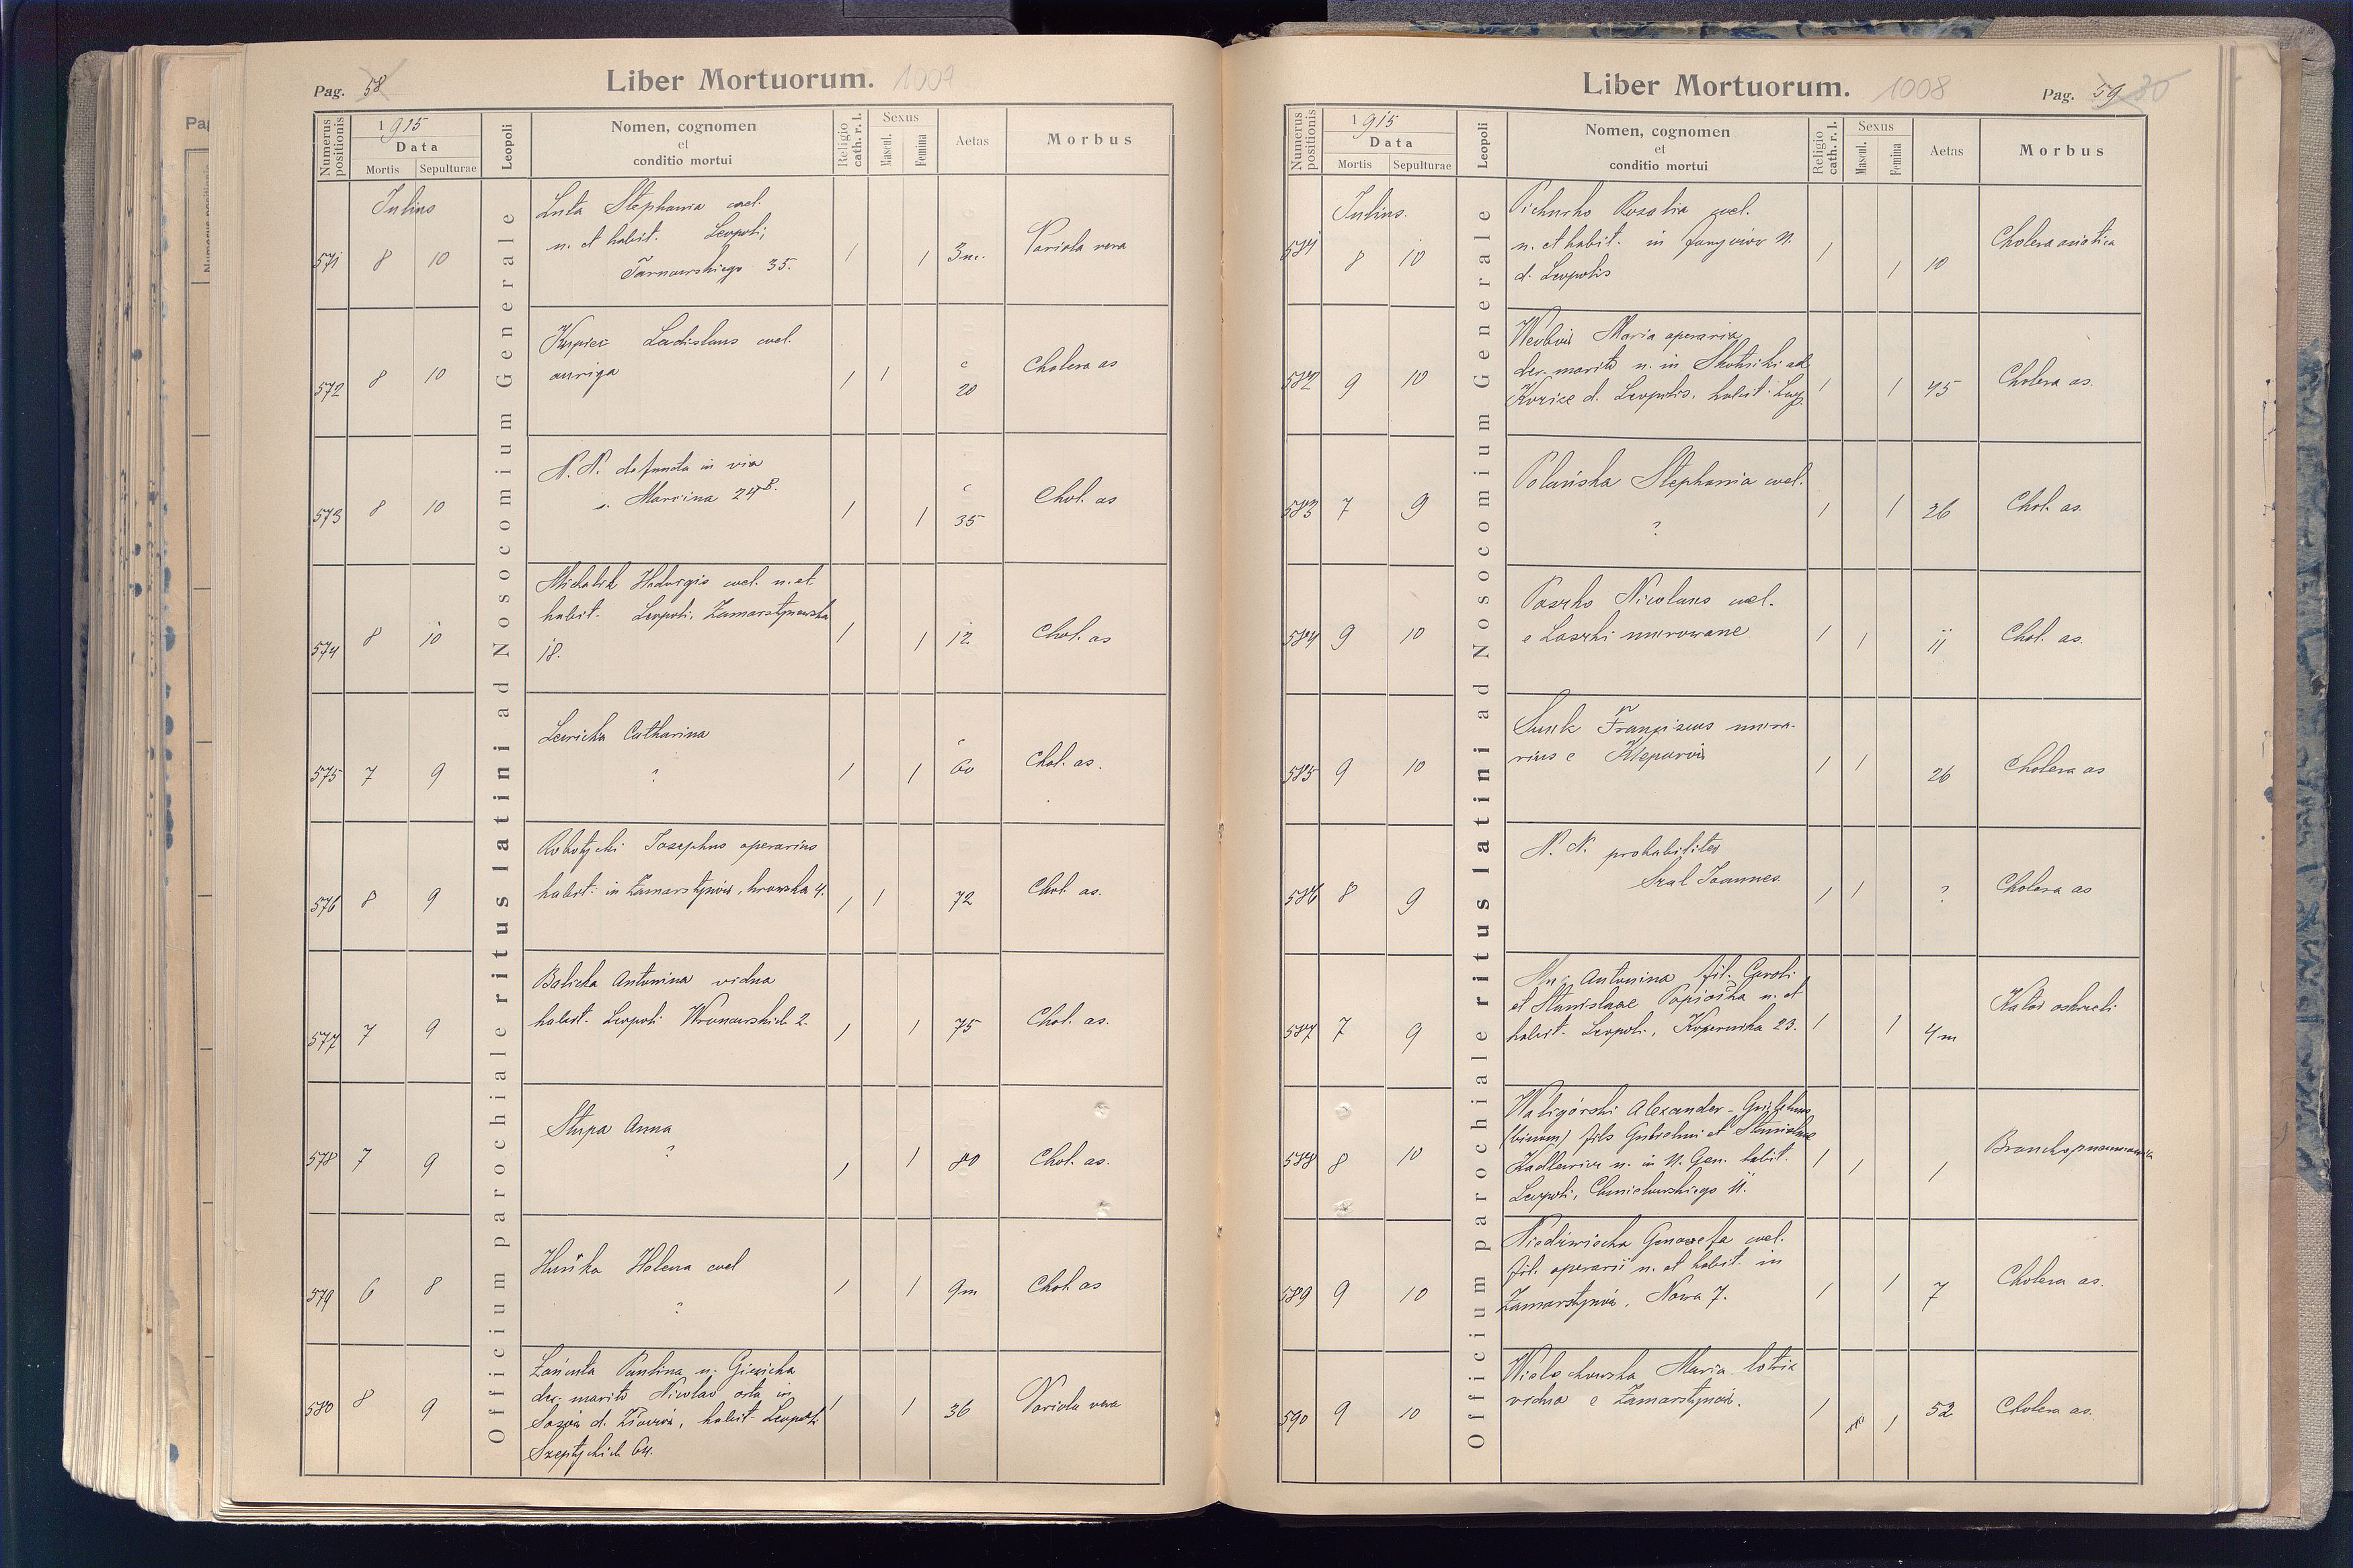 Pag. 58
Liber Mortuorum. 1007
Numerus positionis
1915
Data
Mortis Sepulturae
Leopoli
Nomen, cognomen
et
conditio mortui
Religio cath. r. l.
Sexus
Mascul. Femina
Aetas
Morbus
Officium parochiale ritus latini ad Nosocomium Generale
Julius
571 8 10
Luta Stephania cael.
n. et habit. Leopoli,
Tarnowskiego 35.
1 1 3m. Variola vera
572 8 10
Ladislaus cael.
auriga
1 1 c 20 Cholera as
573 8 10
N. N. defuncta in via
s. Marcina 24B.
1 1 c 35 Chol. as
574 8 10
Michalik Hedvigis cael. n. et
habit. Leopoli, Zamarstynowska
18.
1 1 12 Chol. as
575 7 9
Lewicka Catharina
?
1 1 c 60 Chol. as.
576 8 9
Robotycki Josephus operarius
habit. in Zamarstynów, 4.
1 1 72 Chol. as.
577 7 9
Balicka Antonina vidua
habit. Leopoli Wronowskich 2.
1 1 75 Chol. as.
578 7 9
Stupa Anna
?
1 1 80 Chol. as.
579 6 8
Helena cael
?
1 1 9m Chol. as
580 8 9
Paulina n. Giewicka
der. marito Nicolao orta in
d. habit. Leopoli
Szeptyckich 64.
1 1 36 Variola vera
Liber Mortuorum. 1008
Pag. 59 30
Numerus positionis
1915
Data
Mortis Sepulturae
Leopoli
Nomen, cognomen
et
conditio mortui
Religio cath. r. l.
Sexus
Mascul. Femina
Aetas
Morbus
Officium parochiale ritus latini ad Nosocomium Generale
Julius.
581 8 10
Pichurko Rozalia cael.
n. et habit. in
d. Leopolis
1 1 10 Cholera asiatica
582 9 10
Maria operaria
der. marito n. in ad
d. Leopolis. habit. Leop.
1 1 45 Cholera as.
583 7 9
Polańska Stephania cael.
?
1 1 26 Chol. as.
584 9 10
Paszko Nicolaus cael.
e Laszki murowane
1 1 11 Chol. as.
585 9 10
Franciscus mura-
rius e Kleparów
1 1 26 Cholera as
586 8 9
N. N. probabiliter
Joannes.
1 1 ? Cholera as
587 7 9
Antonina fil. Caroli
et Stanislaae n. et
habit. Leopoli, Kopernika 23.
1 1 4m Katar oskrzeli
588 8 10
Waligórski Alexander-Guilelmus
(binom) fils Guilelmi et Stanislaae
Kadlewicz n. in N. Gen. habit.
Leopoli, Chmielowskiego 11.
1 1 1 Bronchopneumonia
589 9 10
Niedźwiecka Genowefa cael.
fil. operarii n. et habit. in
Zamarstynów, Nowa 7.
1 1 7 Cholera as.
590 9 10
Maria lotrix
vidua e Zamarstynów.
1 1 52 Cholera as.